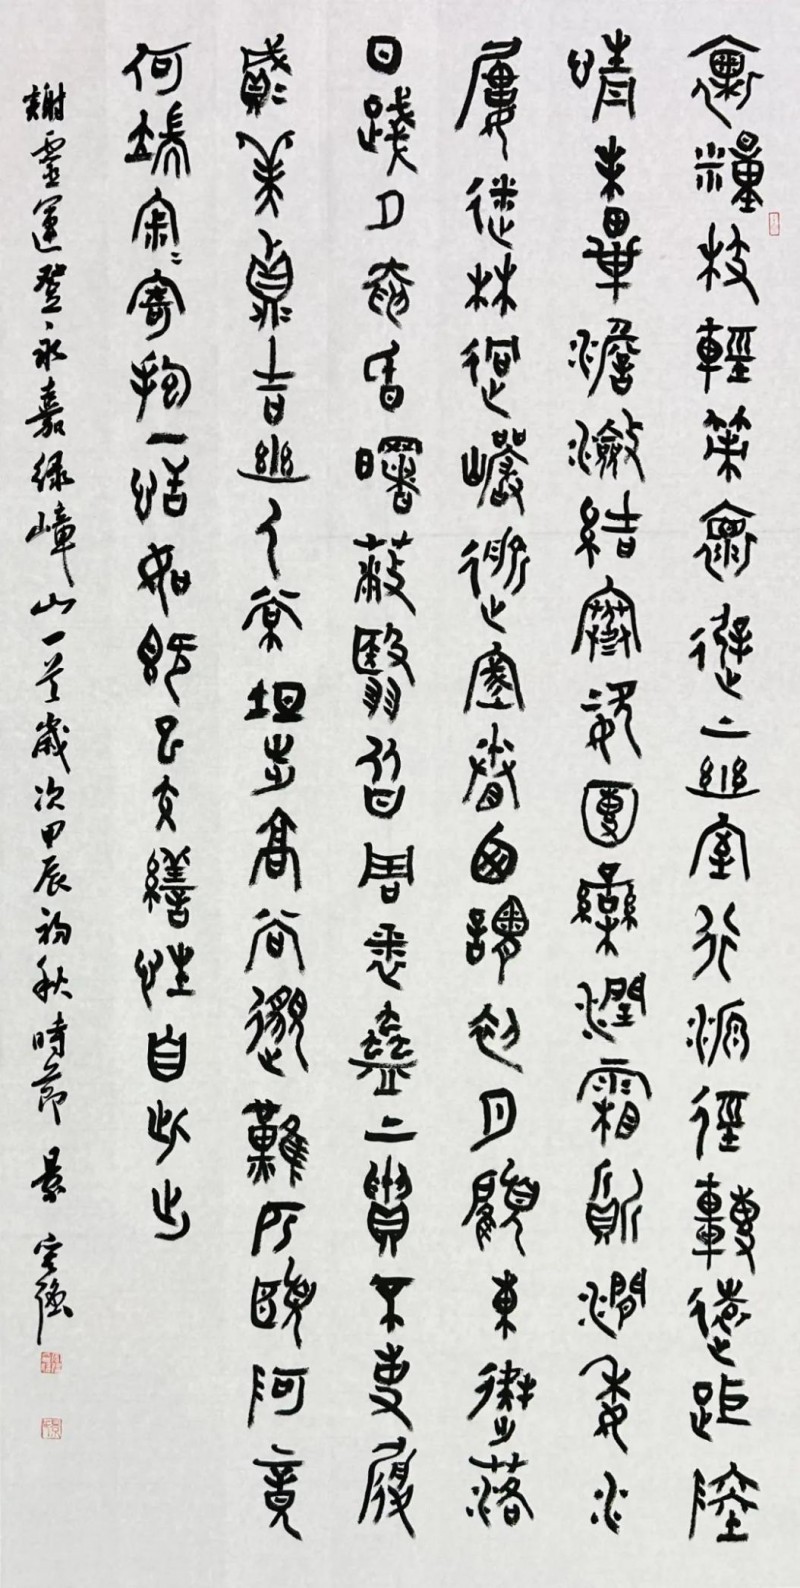 裹糧杖輕策懷遲上幽室行源徑轉遠距陸
情未畢澹瀲結寒姿團欒潤霜質澗委水
屢迷林迥巖逾密眷西謂初月顧東疑落
日踐夕奄昏曙蔽翳皆周悉蠱上貴不事履
二美貞吉幽人常坦步高尚邈難匹頤阿竟
何端寂寂寄抱一恬如既已交繕性自此出
謝靈運登永嘉緑嶂山一首歲次甲辰初秋時節景宝强